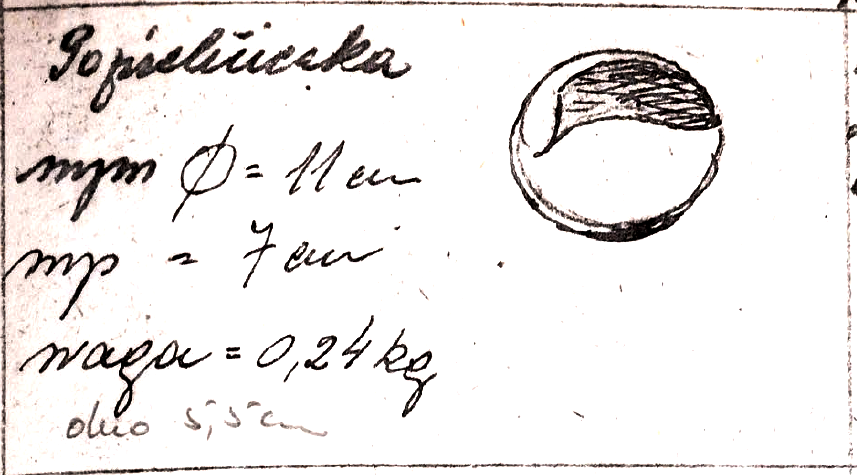 Popielniczka
wym ϕ = 11 cm
wp = 7 cm
waga = 0,24 kg
dno 5,5 cm